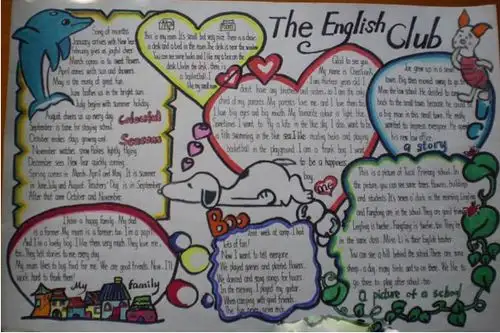 The English Club
Song of months
January arrives with New Year
February goes as joyful cheer
March comes in to sweet flowers
April comes with sun and showers
May is the month of great fun,
June bathes us in the bright sun.
July begins with summer holiday.
August cheers us up every day.
September is time for staying school.
October makes days growing cool.
November watches snow flakes lightly flying.
December sees New Year quickly coming.
Spring comes in March, April and May. It is summer
in June, July and August. Teachers' Day is in September.
After that come October and November.
Colourful
Seasons
This is my room. It's small but very nice. There is a chair,
a desk and a bed in the room. The desk is near the window.
You can see some books and
Under the desk, there is
a basketball. I
like my small room
Glad to see you.
My name is
I am thirteen years old. I
don't have any brothers and sisters, so I am the only
child of my parents. My parents love me and I love them too.
I like big cars and big music. My favourite colour is light blue.
Sometimes I want to fly a kite in the blue sky. I also want to be
a fish swimming in the blue sea. I like reading books and playing
basketball in the playground. I am a frank boy. I want
to be a happiness
boy.
me
Joe grew up in a small
town. Big trees
New law school. He decided to come
back to the small town because he could
be a big man in this small town. He really
wanted to impress everyone. He opened
his new law office.
a story
I have a happy family. My dad
is a farmer. My mum is a farmer, too. I'm a pupil.
And I'm a lovely dog. I like them very much. They love me,
too. They tell stories to me every day.
My mum likes to buy food for me. We are good friends. Now, I'll
work hard to thank them!
My family
Boo
last week at camp. I had
lots of fun!
Now I want to tell everyone.
We played games and planted flowers.
We danced and sang songs for hours.
In the evening, I played my guitar.
When camping with good friends.
The fun never ends.
This is a picture of
Primary school. In
the picture, you can see some trees, flowers, buildings
and students. It's seven o'clock in the morning. Lingling
and Fangfang are in the school. They are good friends.
Lingling is twelve. Fangfang is twelve, too. They're in
the same class. Miss Li is their English teacher.
You can see a hill behind the school. There are some
sheep, a dog, many birds and so on there. We like to
go there to play after school, too.
a picture of a school